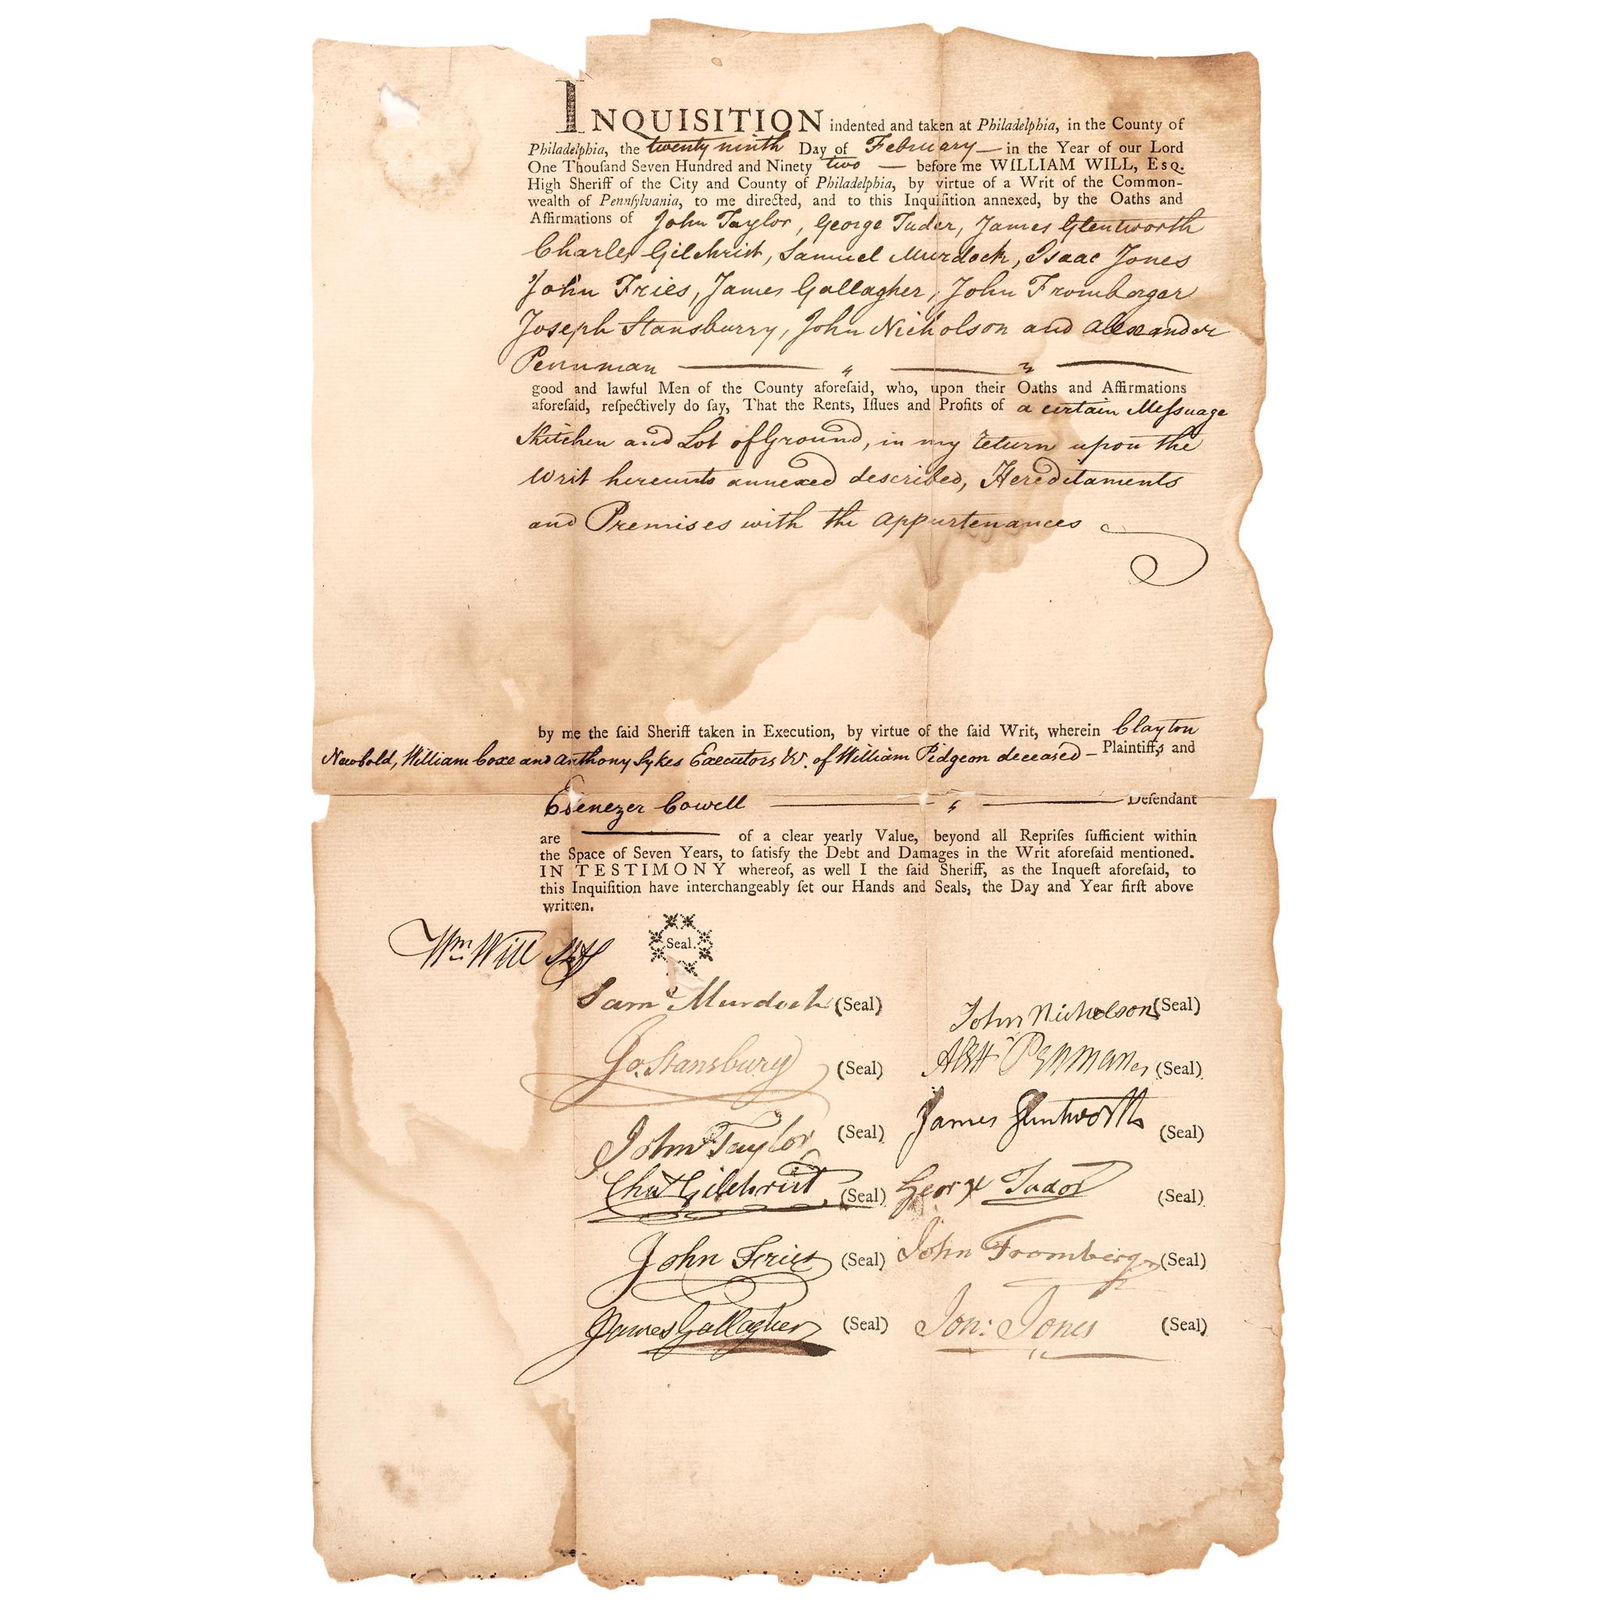 INQUISITION indented and taken at Philadelphia, in the County of
Philadelphia, the twenty ninth Day of February — in the Year of our Lord
One Thouſand Seven Hundred and Ninety two — before me WILLIAM WILL, Esq.
High Sheriff of the City and County of Philadelphia, by virtue of a Writ of the Common-
wealth of Pennſylvania, to me directed, and to this Inquiſition annexed, by the Oaths and
Affirmations of John Taylor, George Tudor, James Glentworth
Charles Gilchrist, Samuel Murdock, Isaac Jones
John Fries, James Gallagher, John Fromberger
Joseph Stansburry, John Nicholson and Alexander
Pennman
good and lawful Men of the County aforeſaid, who, upon their Oaths and Affirmations
aforeſaid, reſpectively do ſay, That the Rents, Iſſues and Profits of a certain Meſsuage
Kitchen and Lot of Ground, in my return upon the
writ hereunto annexed described, Hereditaments
and Premises with the appurtenances
by me the ſaid Sheriff taken in Execution, by virtue of the ſaid Writ, wherein Clayton
Newbold, William Coxe and Anthony Sykes Executors &c. of William Pidgeon deceased — Plaintiffs and
Ebenezer Cowell Defendant
are of a clear yearly Value, beyond all Repriſes ſufficient within
the Space of Seven Years, to ſatisfy the Debt and Damages in the Writ aforeſaid mentioned.
IN TESTIMONY whereof, as well I the ſaid Sheriff, as the Inqueſt aforeſaid, to
this Inquiſition have interchangeably ſet our Hands and Seals, the Day and Year firſt above
written.
Wm Will Shff Seal.
Saml Murdock (Seal) John Nicholson (Seal)
Jo. Stansbury (Seal) Alexr Penman (Seal)
John Taylor (Seal) James Glentworth (Seal)
Chas Gilchrist (Seal) George Tudor (Seal)
John Fries (Seal) John Fromberger (Seal)
James Gallagher (Seal) Jones (Seal)